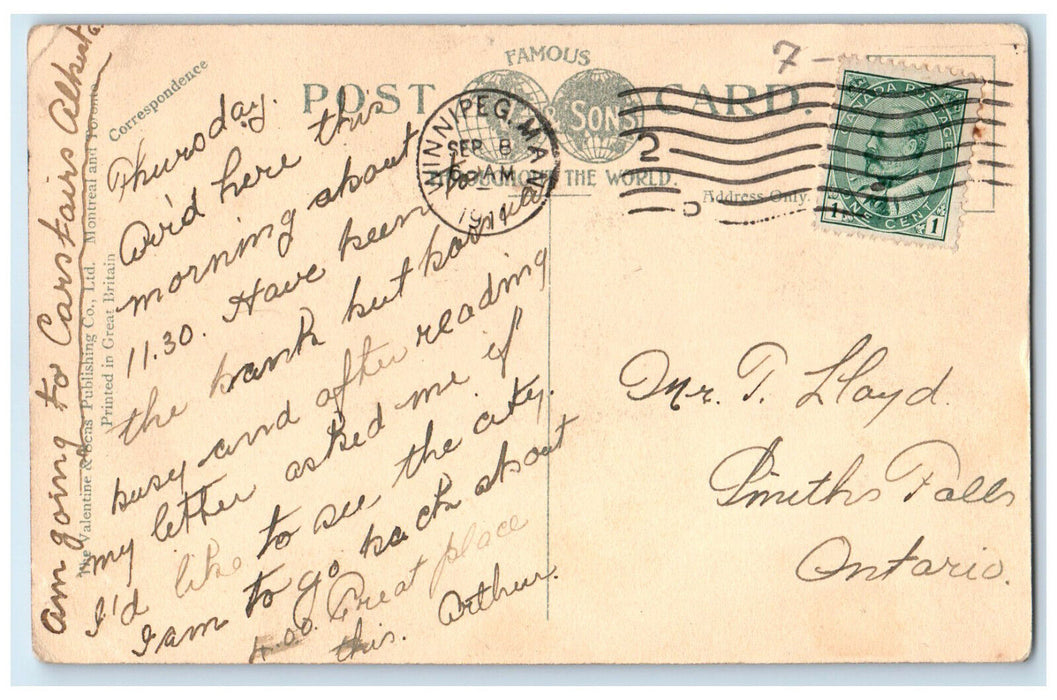 FAMOUS
POST CARD.
& SONS
THROUGHOUT THE WORLD.
Correspondence
Address Only.
7-
WINNIPEG, MAN.
SEP 8
6 AM
191
2
5
CANADA POSTAGE
ONE CENT
1 1
Thursday.
Arr'd here this
morning about
11.30. Have been to
the bank but boss was
busy and after reading
my letter asked me if
I'd like to see the city.
I am to go back about
4.00. Great place
this. Arthur.
Am going to Carstairs Alberta.
The Valentine & Sons Publishing Co., Ltd. Montreal and Toronto
Printed in Great Britain
Mr. T. Lloyd.
Smiths Falls
Ontario.